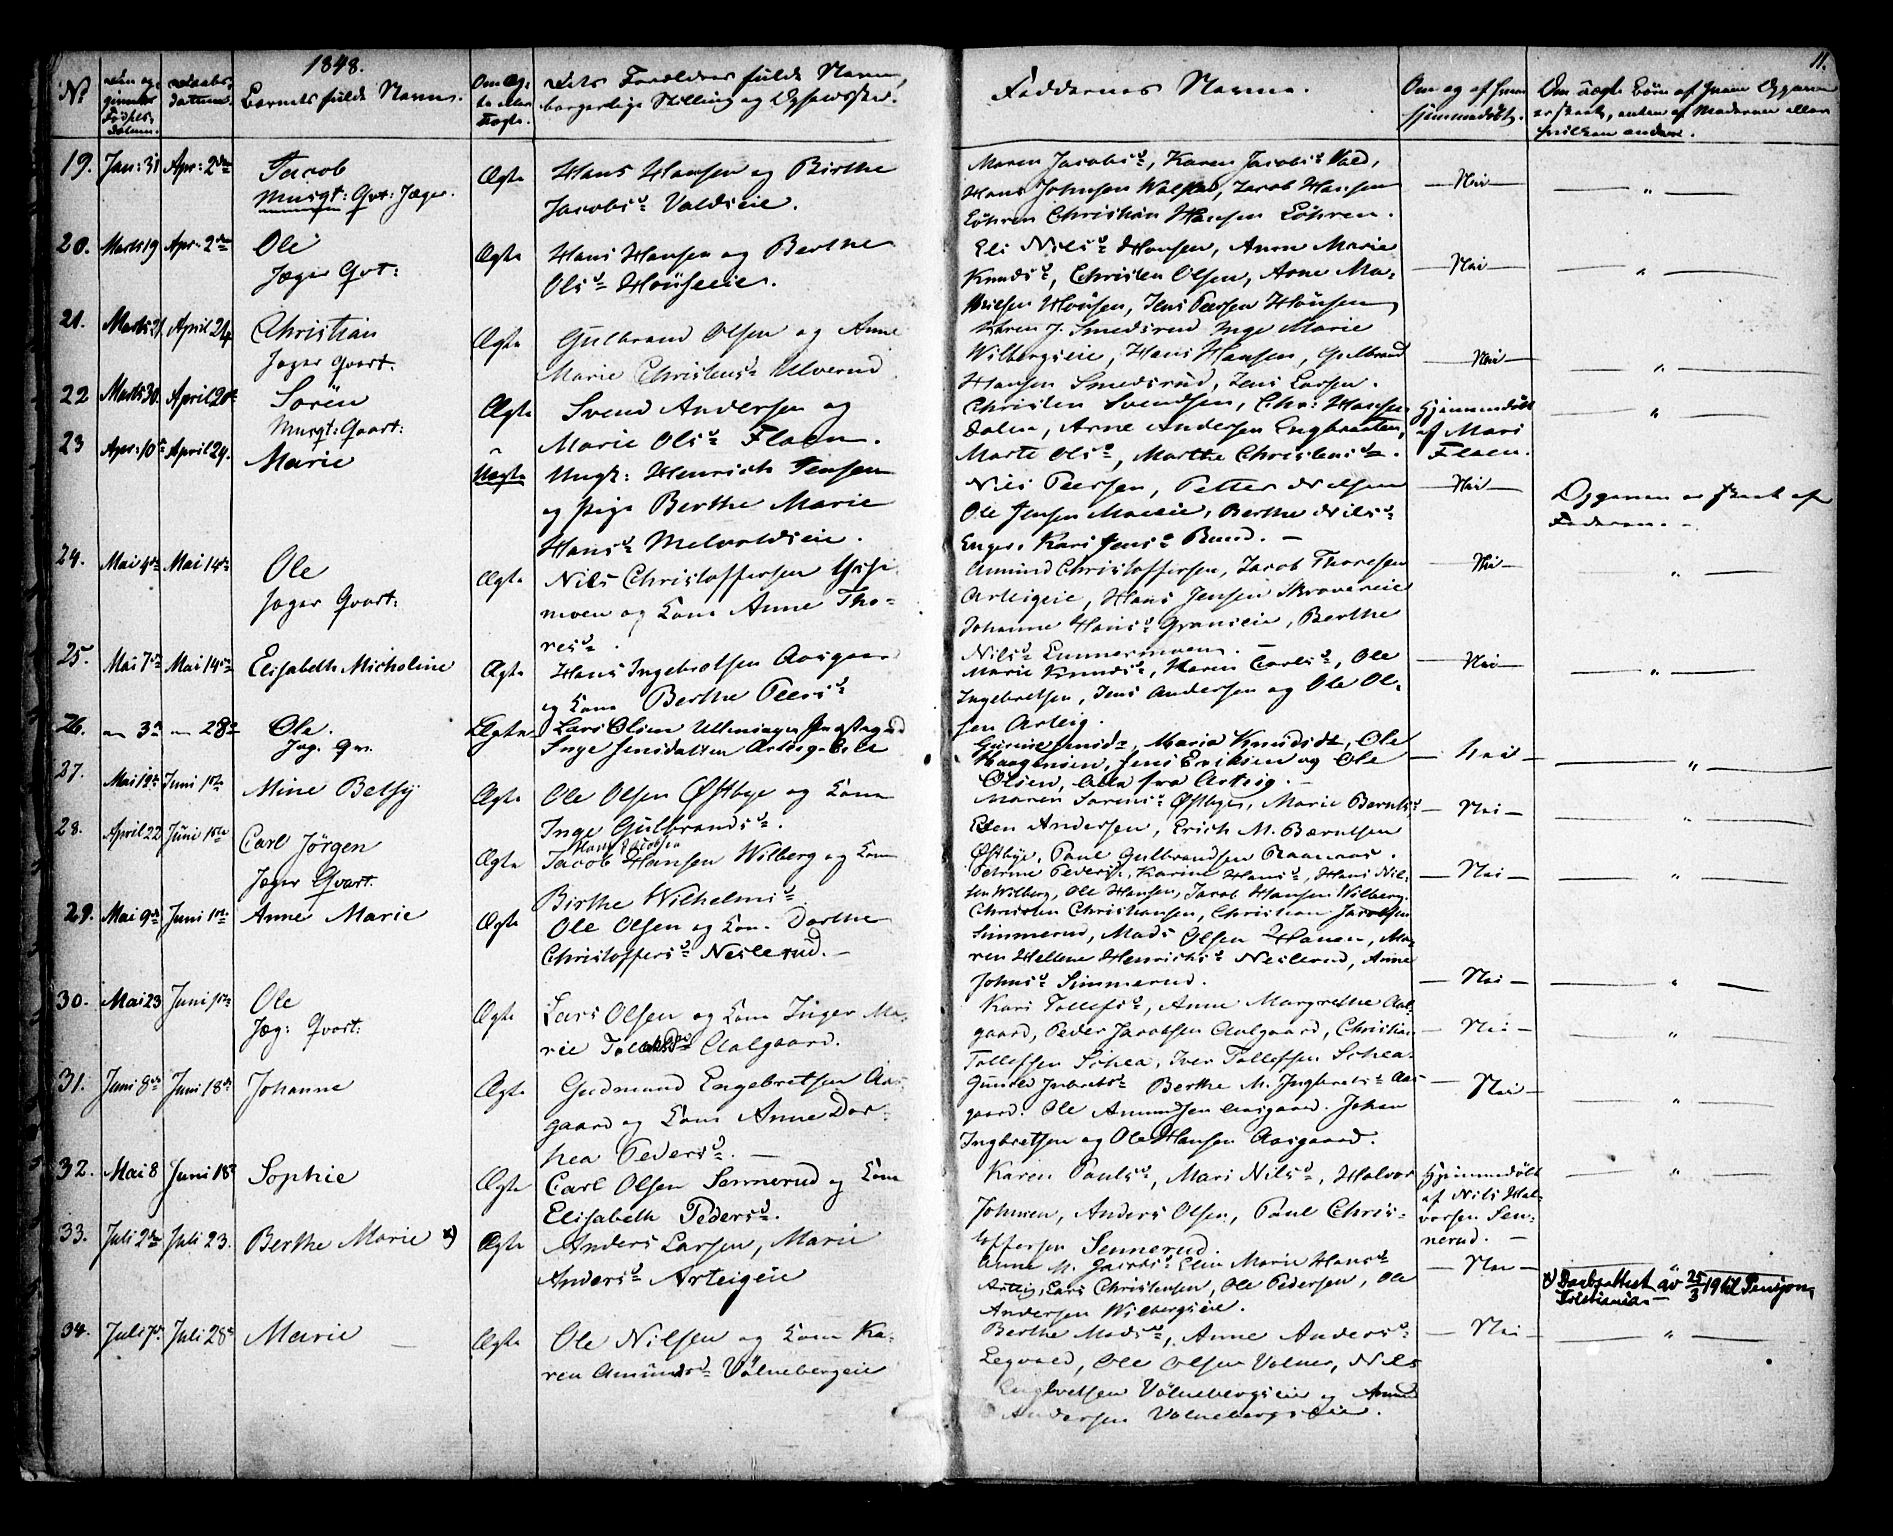 1848.
11.
No
Barnets fulde Navn.
Om Æg-
te eller
Uægte.
Dets Forældres fulde Navn,
borgerlige Stilling og Opholdssted.
Faddernes Navne.
Om og af hvem
hjemmedöbt.
Om uægte Börn af hvem Opgaven
er skeet, enten af Moderen eller
hvilken anden.
19. Jan: 31 Apr: 2den Jacob Ægte Hans Hansen og Birthe
Musqt: Qvt: Jæger. Jacobsd. Valdseie.
Maren Jacobsd., Karen Jacobsd. Vald,
Hans Johnsen, Jacob Hansen
Löhren Christian Hansen Löhren.
— Nei — — " —
20. Marts 19 Apr: 2den Ole Ægte Hans Hansen og Berthe
Jæger Qvt: Olsd. Houseeie.
Eli Nilsd. Housen, Anne Marie
Knudsd., Christen Olsen, Arne Ma-
thisen Housen, Jens Peersen Housen
— Nei — — " —
21. Marts 21. April 24 Christian Ægte Gulbrand Olsen og Anne
Jæger Qvart: Marie Christensd. Ulverud
Karen J. Smedsrud Inge Marie
Wilbergseie, Hans Hansen, Gulbrand
Hansen Smedsrud, Jens Larsen.
— Nei — — " —
22 Marts 30. April 20de Sören Ægte Svend Andersen og
Musqt: Qvart: Marie Olsd. Floen.
Christen Svendsen, Chr: Hansen
Dalen, Arne Andersen Engbraaten,
Marte Olsd., Marthe Christensd.
Hjemmedöbt
af Mari
Floen.
— " —
23 Apr: 10de April 29. Marie Uægte Ungk: Henrich Jensen
og Pige Berthe Marie
Hansd. Melvoldseie.
Nils Peersen, Petter Nilsen
Ole Jensen Moeeie, Berthe Nilsd.
Enger, Kari Jensd. Bund. —
— Nei —
Opgaven er skeet af
Faderen. —
24. Mai 4de Mai 14de Ole Ægte Nils Christoffersen
Jæger Qvart: moen og Kone Anne Tho-
resd.
Amund Christoffersen, Jacob Thoresen
Arteigeie, Hans Jensen Skrovereie
Johanne Hansd. Granseie, Berthe
Nilsd.
— Nei — — " —
25. Mai 7de Mai 14de Elisabeth Micheline Ægte Hans Ingebretsen Aasgaard
og Kone Berthe Peersd.
Marie Knudsd., Karen Carlsd., Ole
Ingebretsen, Jens Andersen og Ole Ol-
sen Arteig.
— Nei — — " —
26. — 3de — 28de Ole. Ægte Lars Olsen
Jæg. Qv. Inge Jensdatter
Jensdt., Marie Knudsdt, Ole
Haagensen, Jens Eriksen og Ole
Olsen, alle fra Arteig. —
— Nei — — " —
27. Mai 19de Juni 1ste Mine Betsy Ægte Ole Olsen Østbye og Kone
Inge Gulbrandsd.
Maren Sörensd. Østbye, Marie Berntsd.
Eden Andersen, Erich M. Bærntsen
Østbye, Paul Gulbrandsen Raanaas.
— Nei — — " —
28. April 22 Juni 1ste Carl Jörgen Ægte Hans Jacobsen
Jæger Qvart. Jacob Hansen Wilberg og Kone
Birthe Wilhelmsd.
Petrine Pedersd., Karine Hansd., Hans Nil-
sen Wilberg, Ole Hansen, Jacob Hansen Wilberg.
— Nei — — " —
29. Mai 9de Juni 1ste Anne Marie Ægte Ole Olsen og Kone Dorthe
Christoffersd. Neslerud. —
Christen Christiansen, Christian Jacobsen
Simmerud, Mads Olsen Hauen, Ma-
ren Hellene Henrichsd. Neslerud, Anne
Johnsd. Simmerud.
— Nei — — " —
30. Mai 23 Juni 1ste Ole Ægte Lars Olsen og Kone Inger Ma-
Jæg: Qvart: rie Aalgaard.
Kari Tollefsd., Anne Margrethe Aal-
gaard, Peder Jacobsen Aalgaard, Christian
Tollefsen Schea, Iver Tollefsen Schea.
— Nei — — " —
31. Juni 8de Juni 18de Johanne Ægte Gudmund Engebretsen Aas-
gaard og Kone Anne Dor-
thea Pedersd. —
Gunild Berthe M. Ingbretsd. Aas-
gaard. Ole Amundsen Aasgaard. Johan
Ingbretsen og Ole Hansen Aasgaard.
— Nei — — " —
32. Mai 8 Juni 18de Sophie Ægte Carl Olsen Sennerud og Kone
Elisabeth Pedersd.
Karen Paulsd., Mari Nilsd., Halvor
Johnsen, Anders Olsen, Paul Chris-
toffersen Sennerud.
Hjemmedöbt
af Nils Hal-
vorsen Sen-
nerud. —
— " —
33. Juli 2den Juli 23. Berthe Marie x) Ægte Anders Larsen, Marie
Andersd. Arteigeie
Anne M. Elen Marie Hansd.
Arteig, Lars Christensen, Ole Pedersen, Ole
Andersen Wilbergseie.
— Nei — "
x) Daabsattest av 25/3 19 til Pensjon,
Kristiania. —
34. Juli 7de Juli 28de Marie — Ægte Ole Nilsen og Kone Ka-
ren Amundsd. Völnebergeie
Berthe Madsd., Anne Andersd.
Legvold, Ole Olsen Volner, Nils
Engbretsen Völnebergseie og Amund
Andersen Volnebergseie.
— Nei — — " —